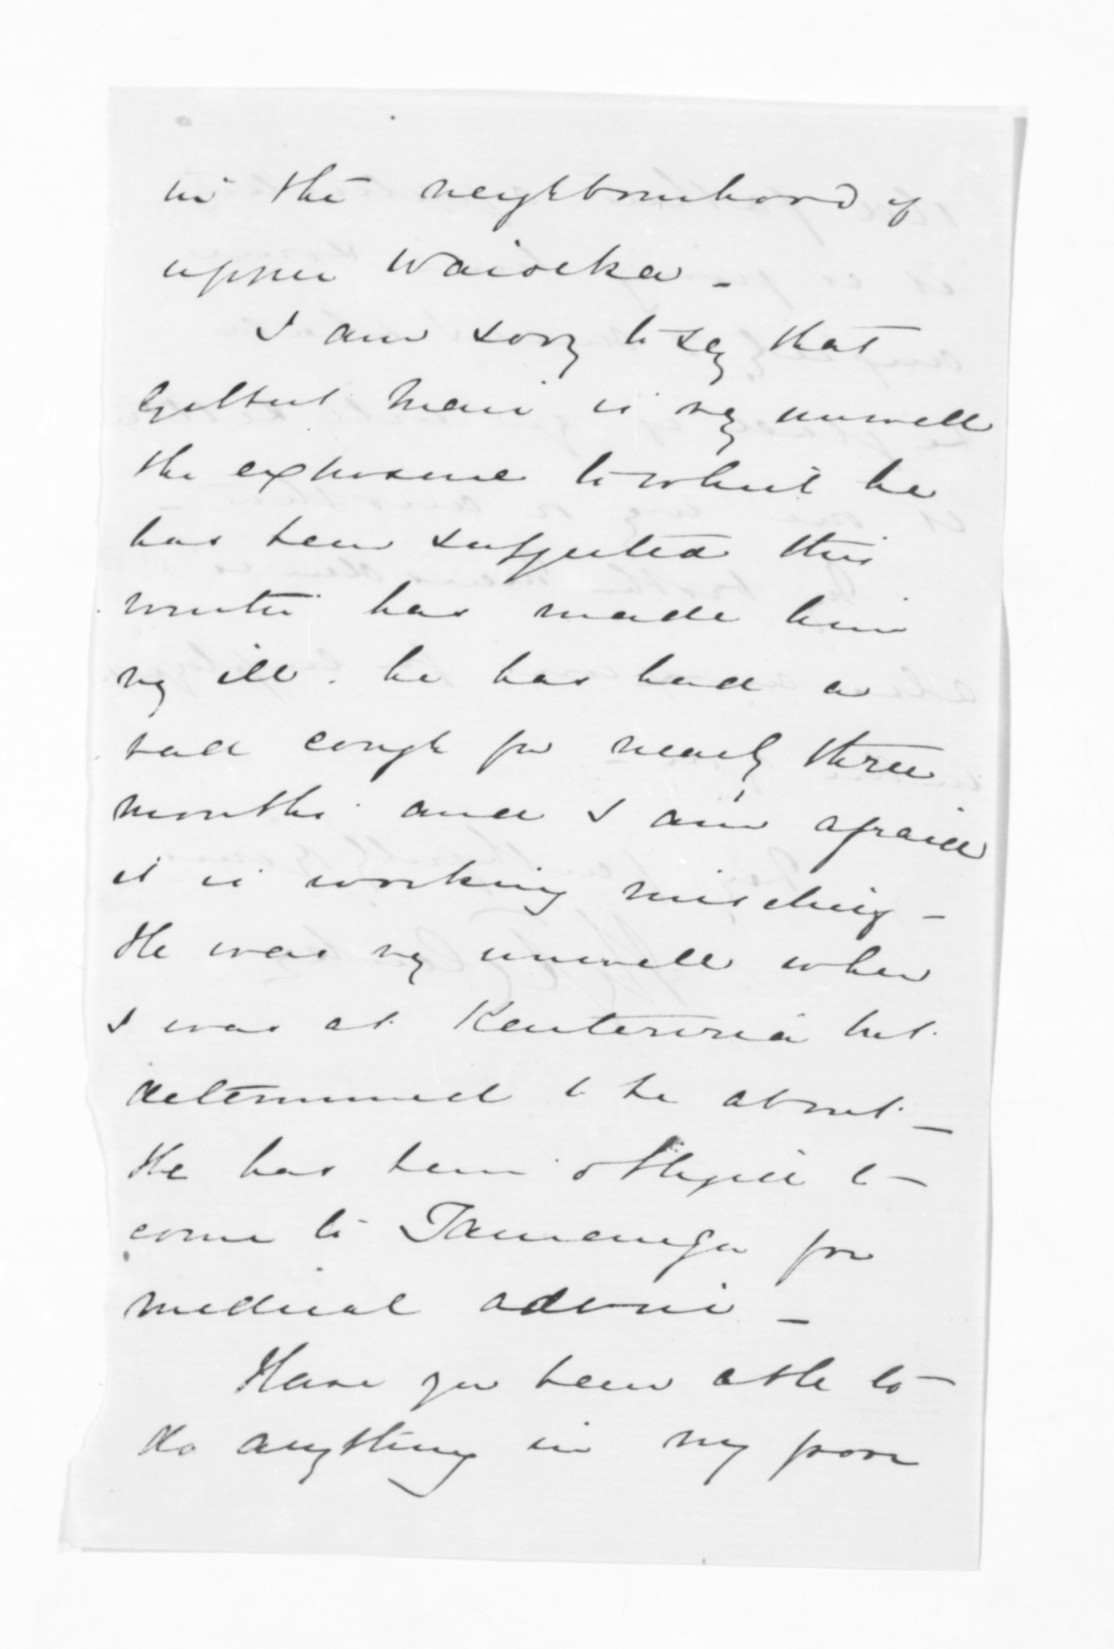 in the neighbourhood of
upper Waioeka -
I am sorry to say that
Gilbert Mair is very unwell
the exposure to which he
has been subjected this
winter has made him
very ill. he has had a
bad cough for nearly three
months and I am afraid
it is working mischief -
He was very unwell when
I was at but
determined to be about -
He has been obliged to
come to Tauranga for
medical advice -
Have you been able to
do anything in my poor